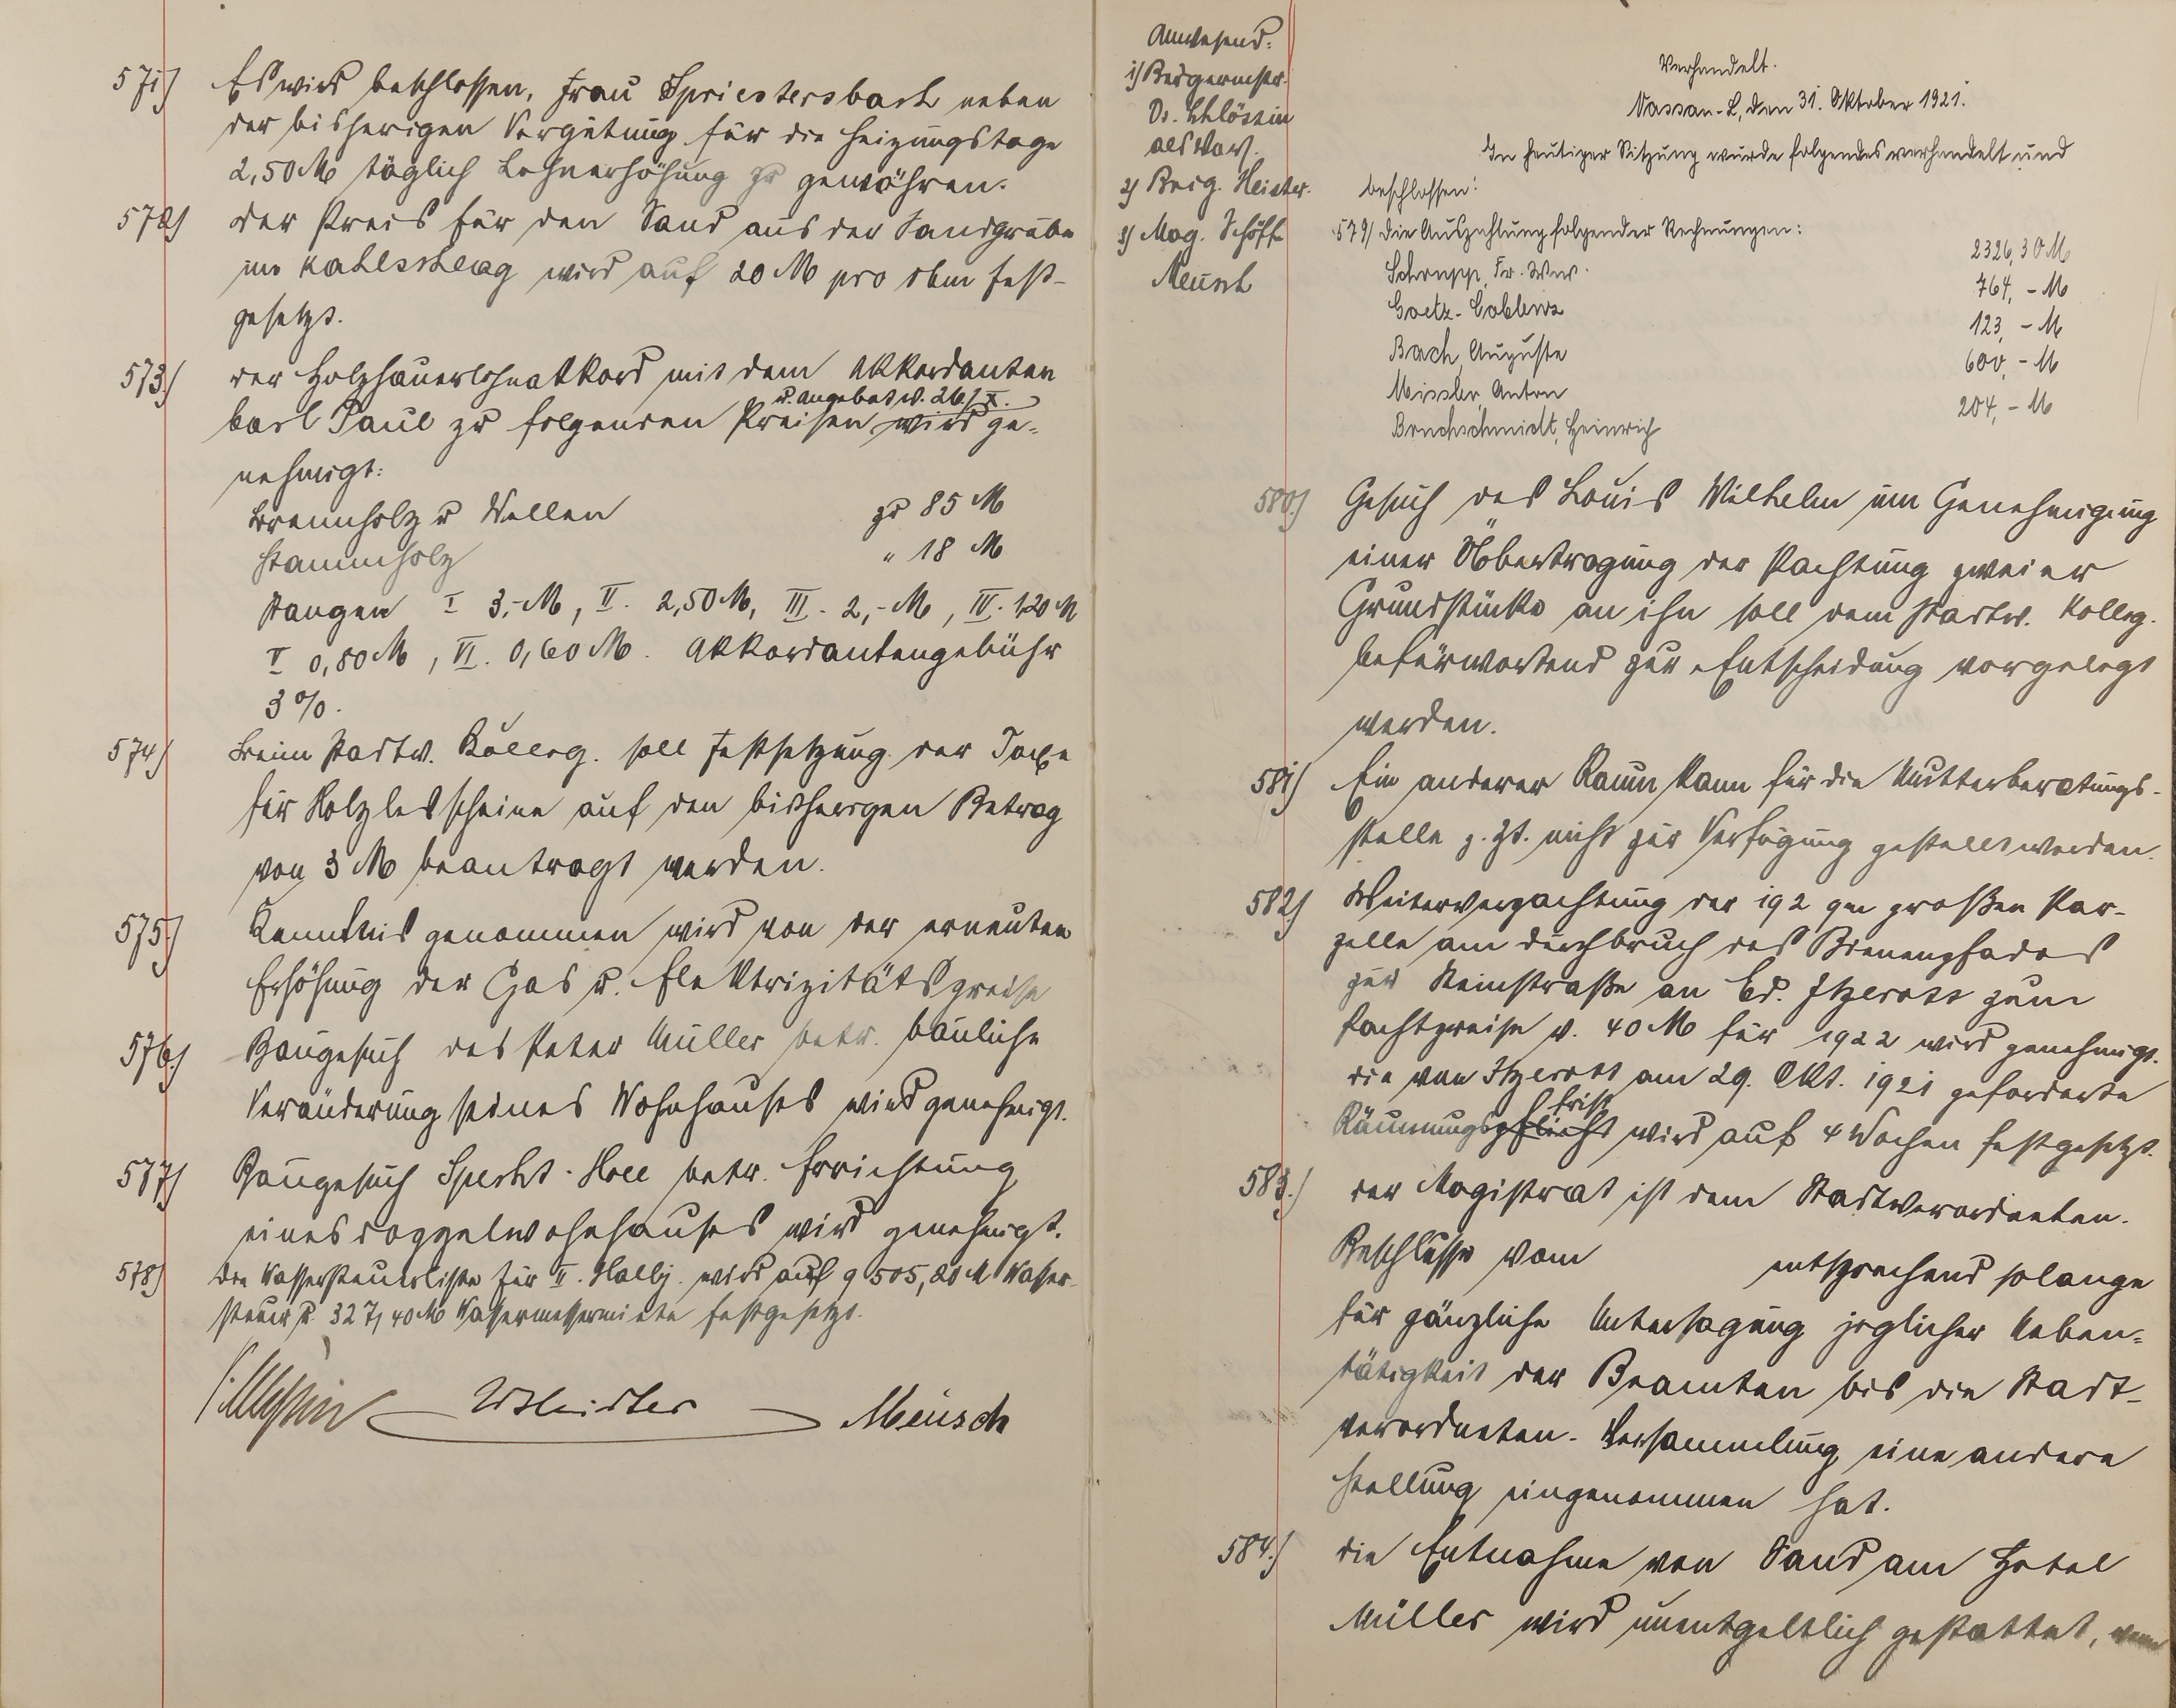 571) Es wird beschlossen, Frau Spriestersbach neben
der bisherigen Vergütung für die Heizungstage
2,50 M täglich Lohnerhöhung zu gewähren.
572) Der Preis für den Sand aus der Sandgrube
im Kahlschlag wird auf 20 M pro cbm fest-
gesetzt.
573) Der Holzhauerlohnakkord mit dem Akkordanten
u. Angebot v. 26./X.
Carl Paul zu folgenden Preisen wird ge-
nehmigt:
Brennholz u Wellen zu 85 M
Stammholz " 18 M
Stangen I 3,- M, II. 2,50 M, III. 2,- M, IV. 1,20 M
V 0,80 M, VI. 0,60 M. Akkordantengebühr
3 %.
574) Beim Stadtv. Kolleg. soll Festsetzung der Taxe
für Holzlesscheine auf den bisherigen Betrag
von 3 M beantragt werden.
575) Kenntnis genommen wird von der erneuten
Erhöhung der Gas u. Elektrizitätspreise
576) Baugesuch des Peter Müller betr. bauliche
Veränderung seines Wohnhauses wird genehmigt.
577) Baugesuch Specht-Holl betr. Errichtung
eines Doppelwohnhauses wird genehmigt.
578) Die Wassersteuerliste für II. Halbj. wird auf 9 505,80 M Wasser-
steuer u. 327,40 M Wassermessermiete festgesetzt.
Meusch
Anwesend:
1) Bürgermstr.
als Vors.
2) Beig. Meister.
3) Mag. Schöffe
Meusch
Verhandelt.
Nassau-L, den 31. Oktober 1921.
In heutiger Sitzung wurde folgendes verhandelt und
beschlossen:
579) Die Auszahlung folgender Rechnungen:
Schrupp, Fr. Ww. 2326,30 M
Goetz-Coblenz 764,- M
Bach, Auguste 123,- M
Missler, Anton 600,- M
Bruchschmidt, Heinrich 204,- M
580.) Gesuch des Louis Wilhelm um Genehmigung
einer Übertragung der Pachtung zweier
Grundstücke an ihn soll dem Stadtv. Kolleg.
befürwortend zur Entscheidung vorgelegt
werden.
581) Ein anderer Raum kann für die Mutterberatungs-
stelle z. Zt. nicht zur Verfügung gestellt werden.
582) Weiterverpachtung der 192 qm großen Par-
zelle am Durchbruch des Bienenpfades
zur Steinstraße an Ed. Itzerott zum
Pachtpreise v. 40 M für 1922 wird genehmigt.
Die von Itzerott am 29. Okt. 1921 geforderte
frist
Räumungspflicht wird auf 4 Wochen festgesetzt.
583.) Der Magistrat ist dem Stadtverordneten-
Beschlusse vom entsprechend solange
für gänzliche Untersagung jeglicher Neben-
tätigkeit der Beamten bis die Stadt-
verordneten-Versammlung eine andere
Stellung eingenommen hat.
584.) Die Entnahme von Sand am Hotel
Müller wird unentgeltlich gestattet, wenn